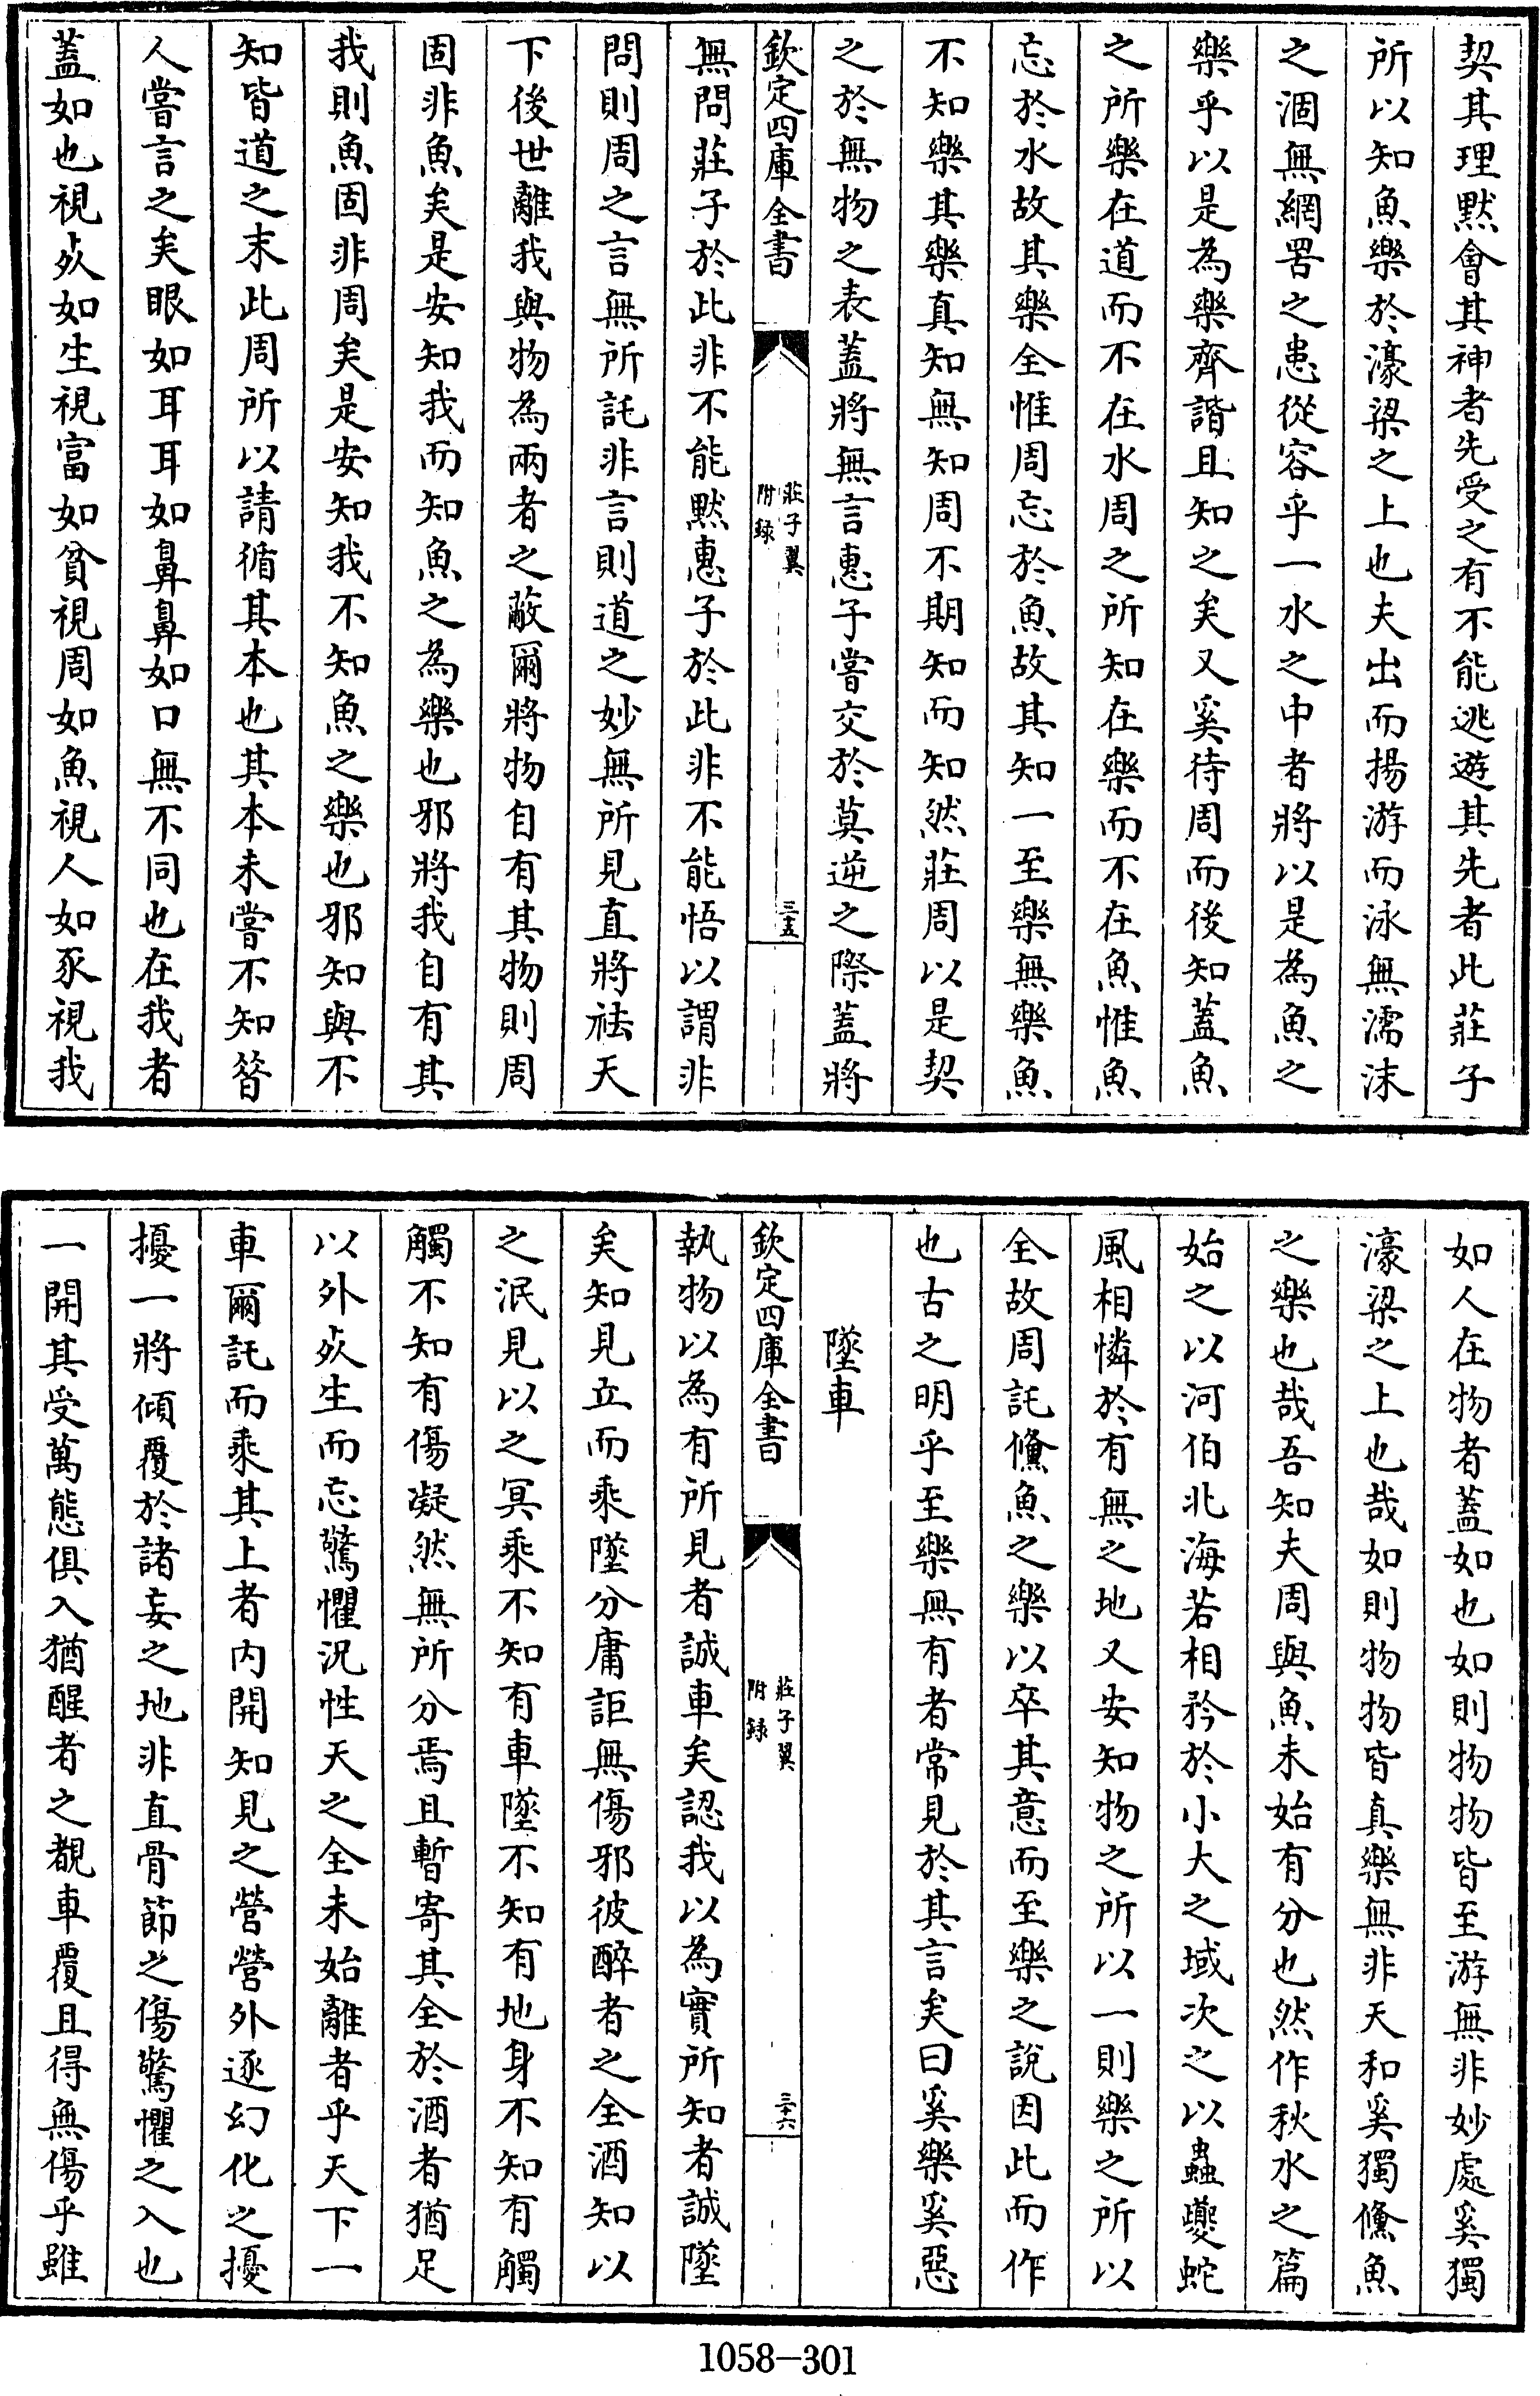 契其理黙會其神者先受之有不能逃遊其先者此莊子
所以知魚樂於濠梁之上也夫出而揚游而泳無濡沫
之涸無網罟之患從容乎一水之中者將以是為魚之
樂乎以是為樂齊諧且知之矣又奚待周而後知蓋魚
之所樂在道而不在水周之所知在樂而不在魚惟魚
忘於水故其樂全惟周忘於魚故其知一至樂無樂魚
不知樂其樂真知無知周不期知而知然莊周以是契
之於無物之表蓋將無言惠子嘗交於莫逆之際蓋將
欽定四庫全書
莊子翼
附録
三十五
無問莊子於此非不能黙惠子於此非不能悟以謂非
問則周之言無所託非言則道之妙無所見直將祛天
下後世離我與物為兩者之蔽爾將物自有其物則周
固非魚矣是安知我而知魚之為樂也邪將我自有其
我則魚固非周矣是安知我不知魚之樂也邪知與不
知皆道之末此周所以請循其本也其本未嘗不知昔
人嘗言之矣眼如耳耳如鼻鼻如口無不同也在我者
蓋如也視死如生視富如貧視周如魚視人如豕視我
如人在物者蓋如也如則物物皆至游無非妙處奚獨
濠梁之上也哉如則物物皆真樂無非天和奚獨鯈魚
之樂也哉吾知夫周與魚未始有分也然作秋水之篇
始之以河伯北海若相矜於小大之域次之以蟲夔蛇
風相憐於有無之地又安知物之所以一則樂之所以
全故周託鯈魚之樂以卒其意而至樂之說因此而作
也古之明乎至樂無有者常見於其言矣曰奚樂奚惡
墜車
欽定四庫全書
莊子翼
附録
三十六
執物以為有所見者誠車矣認我以為實所知者誠墜
矣知見立而乘墜分庸詎無傷邪彼醉者之全酒知以
之泯見以之冥乘不知有車墜不知有地身不知有觸
觸不知有傷凝然無所分焉且暫寄其全於酒者猶足
以外死生而忘驚懼況性天之全未始離者乎天下一
車爾託而乘其上者內開知見之營營外逐幻化之擾
擾一將傾覆於諸妄之地非直骨節之傷驚懼之入也
一開其受萬態俱入猶醒者之覩車覆且得無傷乎雖
1058-301